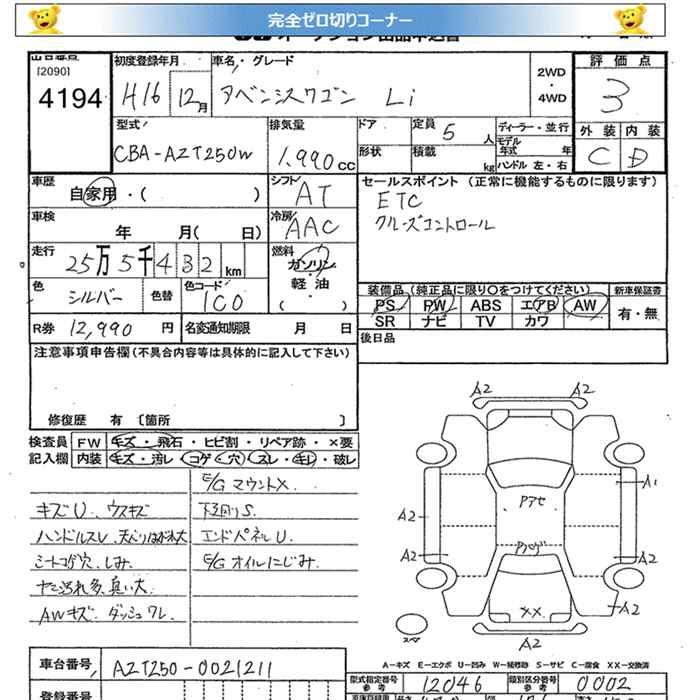 完全ゼロ切りコーナー
[2090]
4194
初度登録年月
H16 12月
車名・グレード
アベンシスワゴン Li
2WD
・
4WD
評価点
3
外装 内装
C D
型式
CBA-AZT250W
排気量
1,990CC
ドア
形状
定員 5 人
積載 kg
ディーラー・並行
モデル年式 年
ハンドル 左・右
車歴
自家用・( )
シフト
AT
セールスポイント (正常に機能するものに限ります)
ETC
クルーズコントロール
車検
年 月( 日)
冷房
AAC
走行
25万5千432km
燃料
ガソリン
軽油
( )
色
シルバー
色替
色コード
1C0
装備品(純正品に限り〇をつけてください)
PS PW ABS エアB AW
SR ナビ TV カワ
新車保証書
有・無
R券 12,990円
名変通知期限 月 日
後日品
注意事項申告欄(不具合内容等は具体的に記入して下さい)
修復歴 有 〔箇所 〕
検査員
記入欄
FW キズ・飛石・ヒビ割・リペア跡・×要
内装 キズ・汚レ・コゲ・穴・スレ・キレ・破レ
キズU、ウスキズ
シートコゲ穴、しみ。
AWキズ・ダッシュワレ
E/GマウントX
下廻りS.
エンドパネルU.
E/Gオイルにじみ.
A2 A2
A1
A2
A2 A2
A2
A2
XX
スペア
A-キズ E-エクボ U-凹み W-補修跡 S-サビ C-腐食 XX-交換済
車台番号
AZT250-0021211
型式指定番号
参考
12046
類別区分番号
参考
0002
登録番号